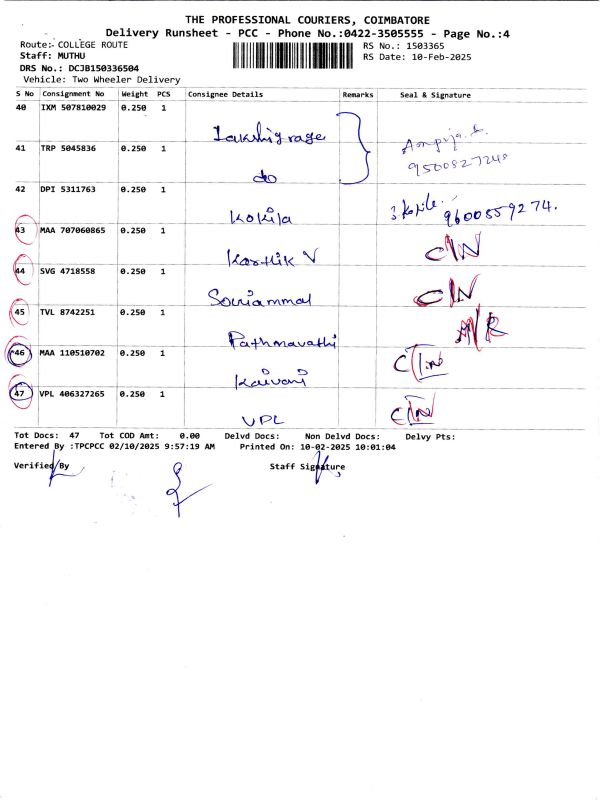 THE PROFESSIONAL COURIERS, COIMBATORE
Delivery Runsheet - PCC - Phone No.:0422-3505555 - Page No.:4
Route:- COLLEGE ROUTE RS No.: 1503365
Staff: MUTHU RS Date: 10-Feb-2025
DRS No.: DCJB150336504
Vehicle: Two Wheeler Delivery
S No Consignment No Weight PCS Consignee Details Remarks Seal & Signature
40 IXM 507810029 0.250 1
41 TRP 5045836 0.250 1 do
42 DPI 5311763 0.250 1 Kokila 9600559274.
43 MAA 707060865 0.250 1 Karthik V C/N
44 SVG 4718558 0.250 1 C/N
45 TVL 8742251 0.250 1 Pathmavathi A/R
46 MAA 110510702 0.250 1
47 VPL 406327265 0.250 1 VPL
Tot Docs: 47 Tot COD Amt: 0.00 Delvd Docs: Non Delvd Docs: Delvy Pts:
Entered By :TPCPCC 02/10/2025 9:57:19 AM Printed On: 10-02-2025 10:01:04
Verified By Staff Signature